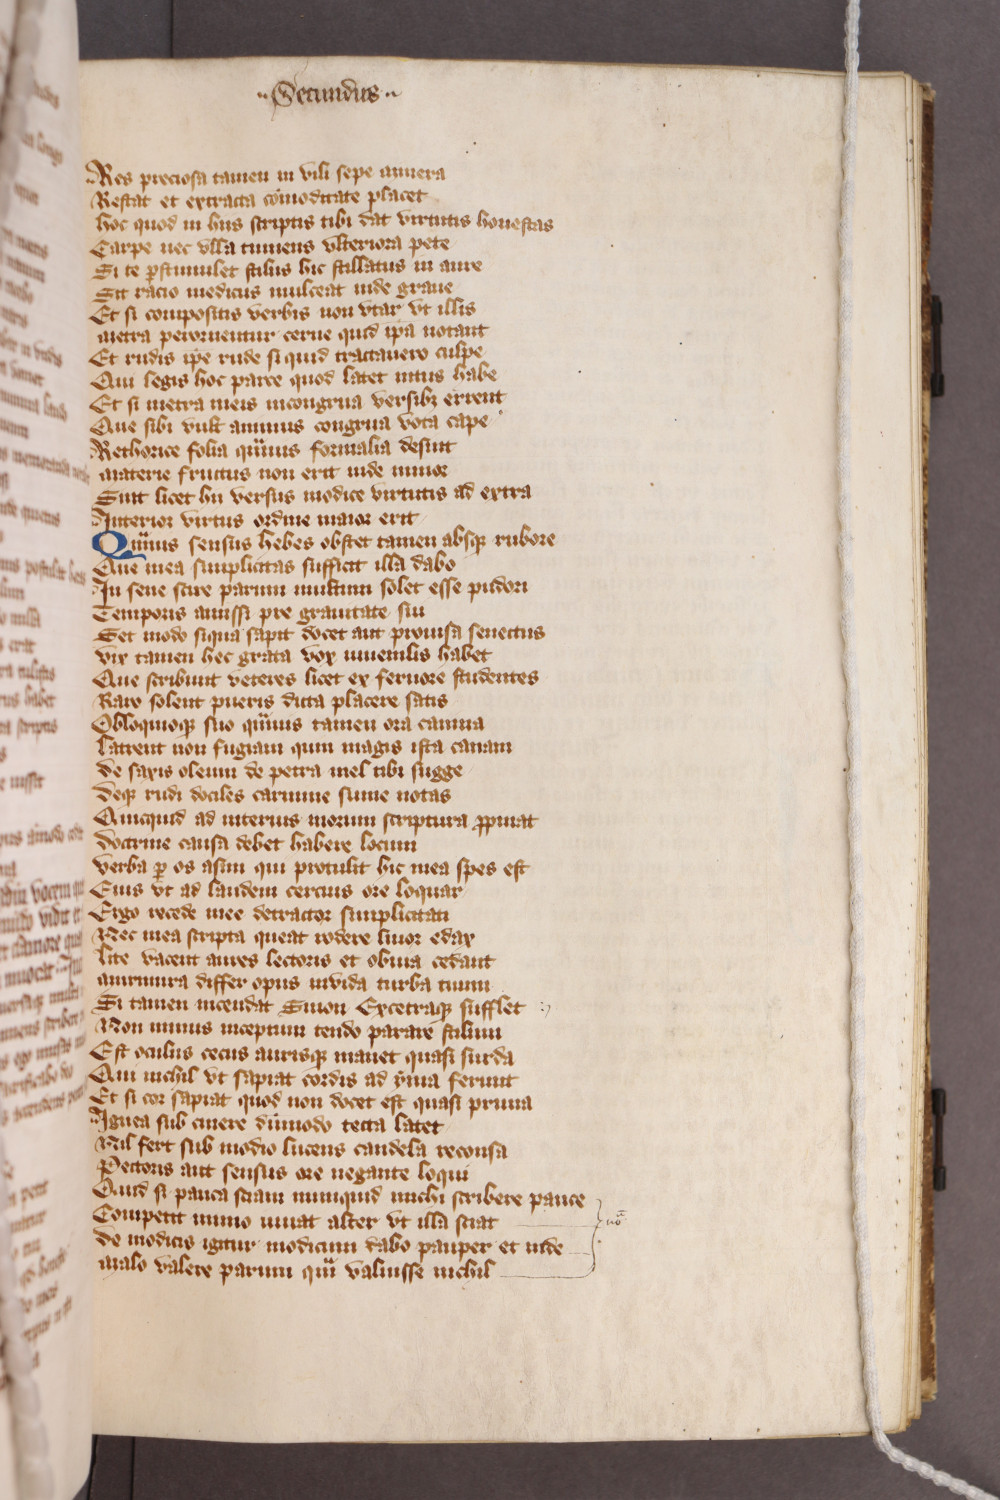 Secundus
Res preciosa tamen in vili sepe mínera
Restat et extracta cōmoditate placet
hoc quod in hiis scriptis tibi dat virtutis honestas
Carpe nec vlla timens vlteriora pete
Si te ꝑstimulet stilus hic stillatus in aure
Sit racio medicus mulceat inde graue
Et si compositis verbis non vtar vt illis
metra perornentur cerne quid ip̄a notant
Et rudis ip̄e rude si quid tractauero culpe
Qui legis hoc parce quod latet intus habe
Et si metra meis incongrua versibꝫ errent
Que sibi vult animus congrua vota cape
Rethorice folia quīuis formalia desint
materie fructus non erit inde minor
Sint licet hii versus modice virtutis ad extra
Interior virtus ordine maior erit
Quīuis sensus hebes obstet tamen absqꝫ rubore
Que mea simplicitas sufficit illa dabo
In sene scire parum multum solet esse pudori
Temporis amissi pre grauitate sui
Set modo siqua sapit docet aut prouisa senectus
vix tamen hec grata vox iuuenilis habet
Que scribunt veteres licet ex feruore studentes
Raro solent pueris dicta placere satis
Obloquioqꝫ suo quīuis tamen ora canina
latrent non fugiam quin magis ista canam
de saxis oleum de petra mel tibi sugge
deqꝫ rudi dociles carmine sume notas
Quicquid ad interius morum scriptura ꝓpinat
doctrine causa debet habere locum
verba ꝑ os asini qui protulit hic mea spes est
Eius vt ad laudem cercius ore loquar
Ergo recede mee detractor simplicitati
Nec mea scripta queat rodere liuor edax
lite vacent aures lectoris et obuia cedant
murmura differ opus inuida turba tuum
Si tamen incendat Sinon Excetraqꝫ sufflet
Non minus inceptum tendo parare stilum
Est oculus cecus aurisqꝫ manet quasi surda
Qui nichil vt sapiat cordis ad yma ferunt
Et si cor sapiat quod non docet est quasi pruna
Ignea sub cinere dūmodo tecta latet
Nil fert sub modio lucens candela reconsa
Pectoris aut sensus ore negante loqui
Quid si pauca sciam numquid michi scribere pauce
Competit immo iuuat alter vt illa sciat
de modicis igitur modicum dabo pauper et inde
malo valere parum quī valuisse nichil